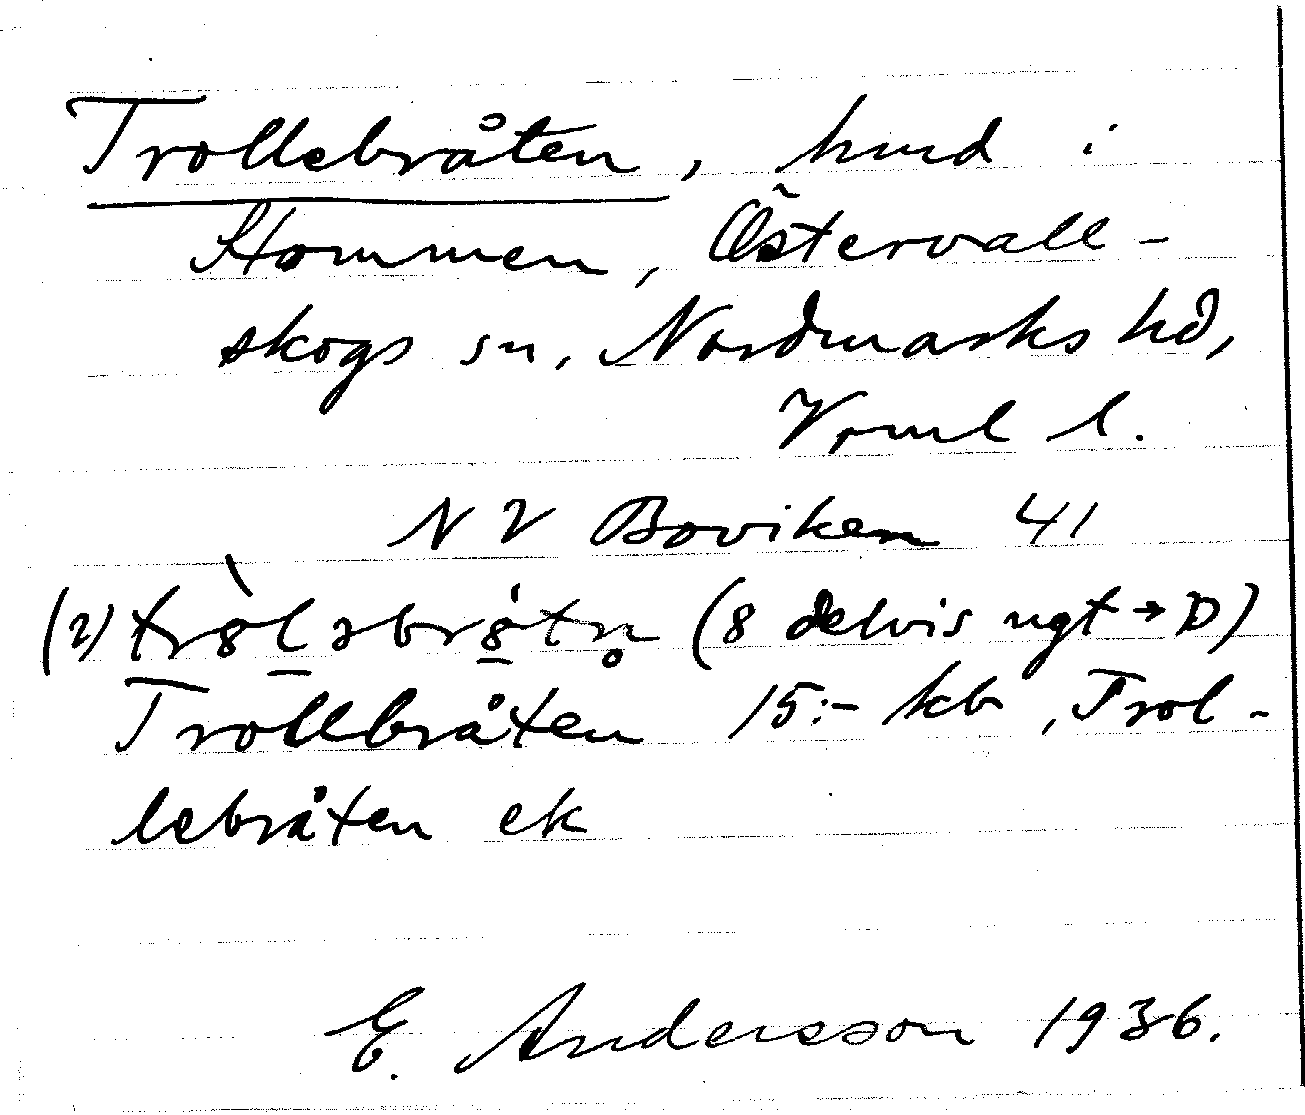 Trollebråten, hmd i
Hommen, Östervall-
skogs sn, Nordmarks hd,
Vrml l.
NV Boviken 41
(2) tr8̀l̠əbr8̠́tn̥ (8 delvis ngt → D)
Trollbråten 15:- kb, Trol-
lebråten ek
E. Andersson 1936.